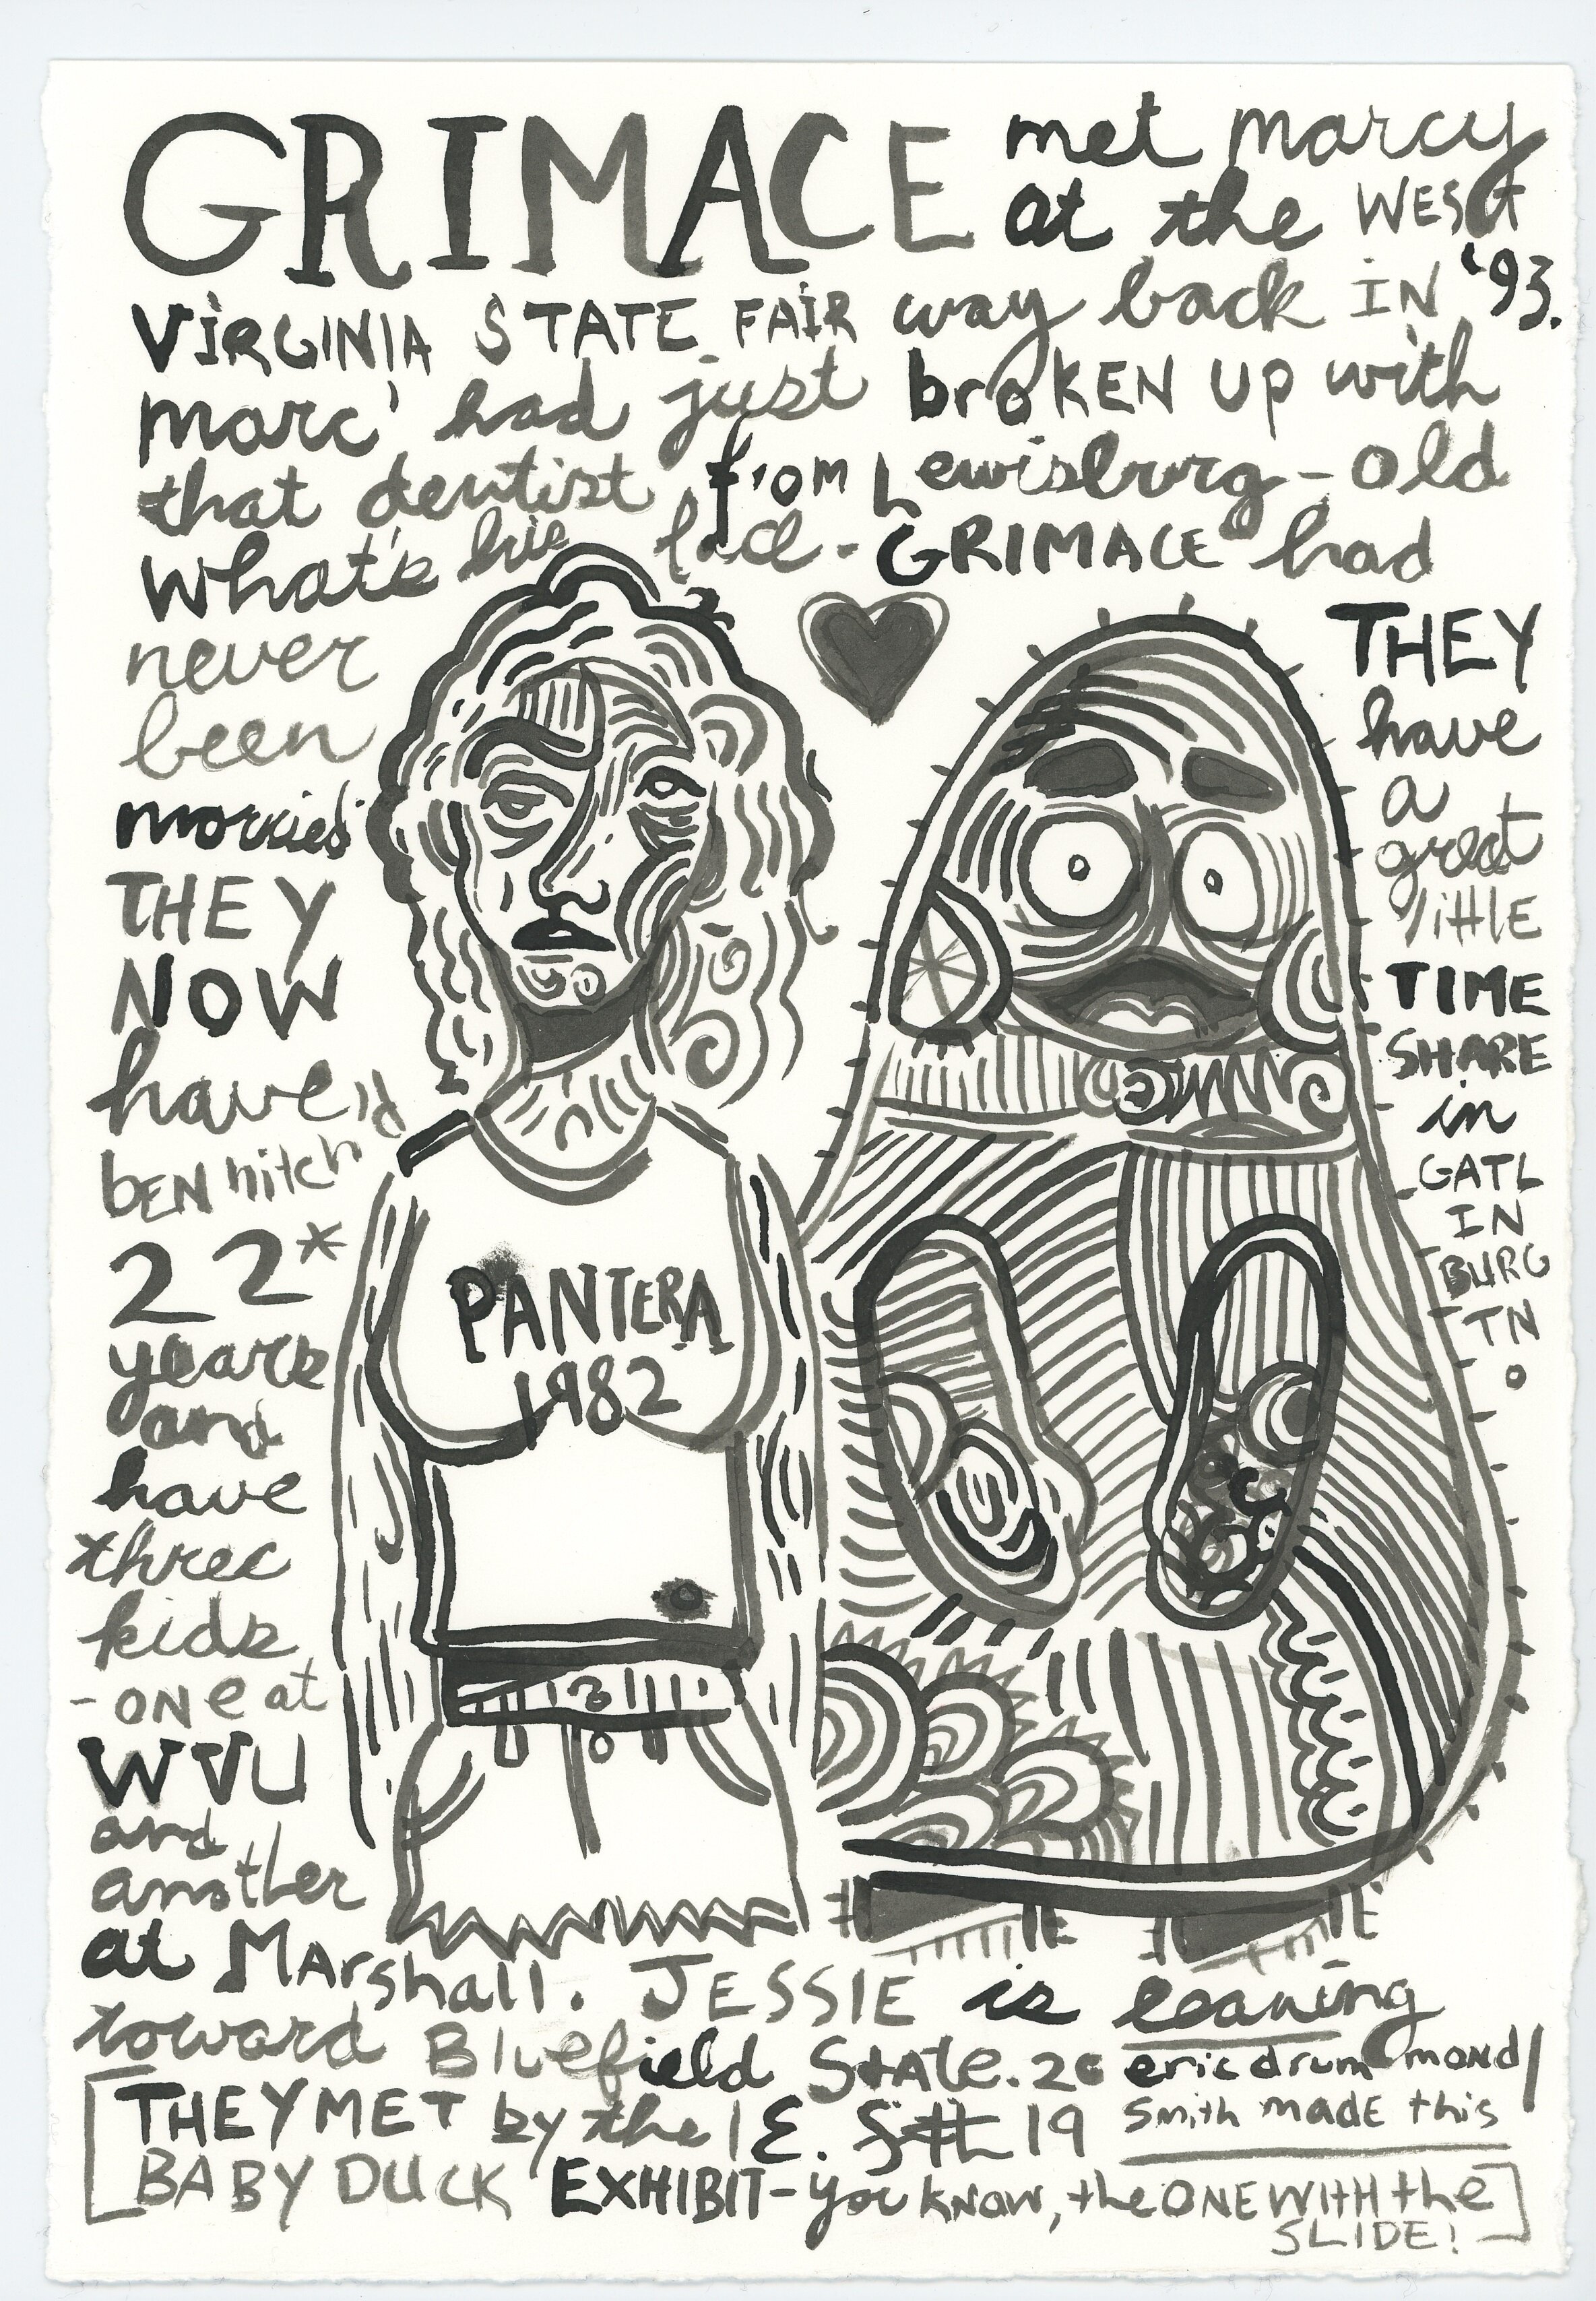 GRIMACE met marcy
at the WEST
VIRGINIA STATE FAIR way back IN '93.
Marc' had just broKEN UP with
that dentist from Lewisburg - old
what's his face. GRIMACE had
never
been
married
THEY
NOW
have
bEN hitch'd
22*
years
and
have
three
kids
- ONe at
WVU
and
another
at Marshall. JESSIE is leaning
toward Bluefield State.
THEY
have
a
great
little
TIME
SHARE
in
GATL
IN
BURG
TN
PANTERA
1982
eric drummond
Smith made this
20
19
[THEY MET by the
BABY DUCK EXHIBIT - you know, the ONE WITH the
SLIDE!]